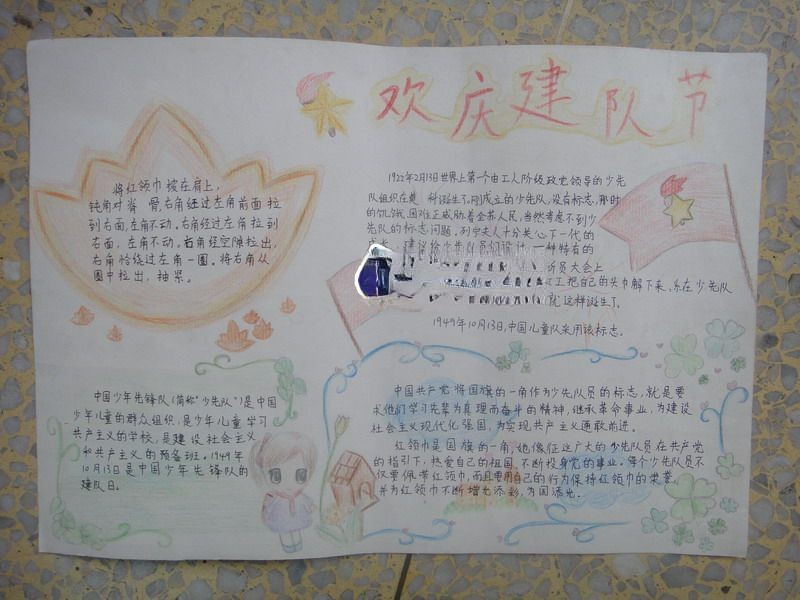 欢庆建队节
将红领巾披在肩上,
钝角对脊骨,右角经过左角前面拉
到右面,左角不动。右角经过左角拉到
右面,左角不动。右角经空隙拉出,
右角恰绕过左角一圈。将右角从
圈中拉出,抽紧。
1922年2月13日世界上第一个由工人阶级政党领导的少先
队组织在莫 科诞生了,刚成立的少先队,没有标志,那时
的饥饿,困难正威胁着全苏人民,当然考虑不到少
先队的标志问题。列宁夫人十分关心下一代的
建议给少先队员们设计 一种特有的
员大会上
工把自己的头巾解下来,系在少先队
就这样诞生了。
1949年10月13日,中国儿童队采用该标志。
中国少年先锋队(简称“少先队”)是中国
少年儿童的群众组织,是少年儿童学习
共产主义的学校,是建设社会主义
和共产主义的预备班。1949年
10月13日是中国少年先锋队的
建队日。
中国共产党将国旗的一角作为少先队员的标志,就是要
求他们学习先辈为真理而奋斗的精神,继承革命事业,为建设
社会主义现代化强国,为实现共产主义通敢前进。
红领巾是国旗的一角,她像征这广大的少先队员在共产党
的指引下,热爱自己的祖国,不断投身党的事业。每个少先队员不
仅要佩带红领巾,而且要用自己的行为保持红领巾的荣誉,
并为红领巾不断增光添彩,为国添光。